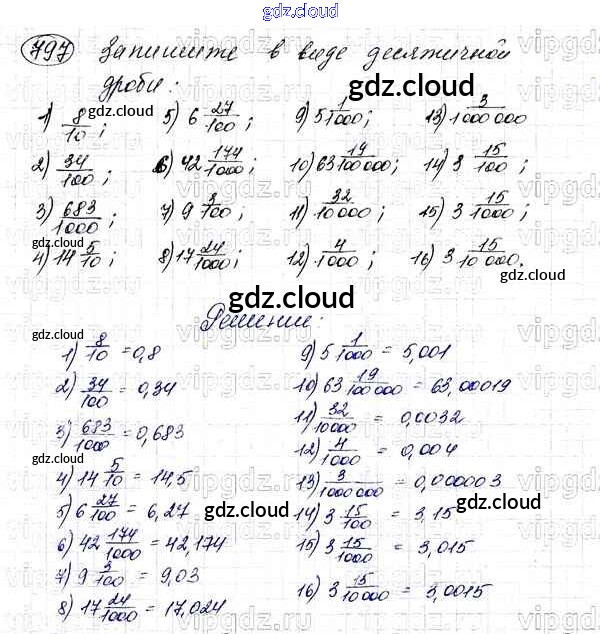 gdz.cloud
797 Запишите в виде десятичной
дроби:
1) 8/10; 5) 6 27/100; 9) 5 1/1000; 13) 3/1000 000
2) 34/100; 6) 42 174/1000; 10) 63 19/100 000; 14) 3 15/100;
3) 683/1000; 7) 9 3/100; 11) 32/10 000; 15) 3 15/1000;
4) 14 5/10; 8) 17 24/1000; 12) 4/1000; 16) 3 15/10 000.
Решение:
1) 8/10 = 0,8
2) 34/100 = 0,34
3) 683/1000 = 0,683
4) 14 5/10 = 14,5
5) 6 27/100 = 6,27
6) 42 174/1000 = 42,174
7) 9 3/100 = 9,03
8) 17 24/1000 = 17,024
9) 5 1/1000 = 5,001
10) 63 19/100 000 = 63,00019
11) 32/10 000 = 0,0032
12) 4/1000 = 0,004
13) 3/1000 000 = 0,000003
14) 3 15/100 = 3,15
15) 3 15/1000 = 3,015
16) 3 15/10 000 = 3,0015
gdz.cloud
vipgdz.ru